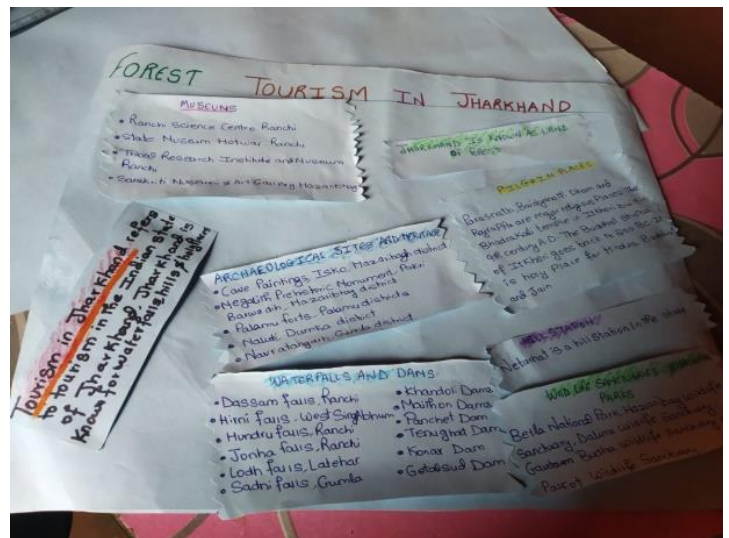 FOREST TOURISM IN JHARKHAND
MUSEUMS
• Ranchi Science Centre Ranchi
• State Museum Hotwar, Ranchi
• Tribal Research Institute and Museum
Ranchi
• Sanskriti Museum & Art Gallery Hazaribag
JHARKHAND IS KNOWN AS LAND
OF
PILGRIM PLACES
Parasnath, Baidyanath Dham and
Rajrappa are major religious Places. The
Bhadrakali temple in Itkhori built in
9th century A.D. The Buddhist
of Itkhori goes back to
is holy Place for Hindus,
and Jain
Tourism in Jharkhand refers
to tourism in the Indian state
of Jharkhand. Jharkhand is
known for waterfalls, hills & holy places
ARCHAEOLOGICAL SITES AND HERITAGE
• Cave Paintings, Isko, Hazaribag district
• Megalith Prehistoric Monument, Pakri
Barwadih, Hazaribag district
• Palamu forts, Palamu districts
• Maluti, Dumka district
• Navratangarh, Gumla district
HILL STATION
Netarhat is a hill Station in the state
WATERFALLS AND DAMS
• Dassam falls, Ranchi
• Hirni falls, West Singhbhum
• Hundru falls, Ranchi
• Jonha falls, Ranchi
• Lodh falls, Latehar
• Sadni falls, Gumla
• Khandoli Dams
• Maithon Dams
• Panchet Dam
• Tenughat Dam
• Konar Dam
• Getalsud Dam
WILD LIFE SANCTUARIES
PARKS
Betla National Park, Hazaribag Wildlife
Sanctuary, Dalma wildlife Sanctuary,
Gautam Budha wildlife Sanctuary,
Palkot Wildlife Sanctuary